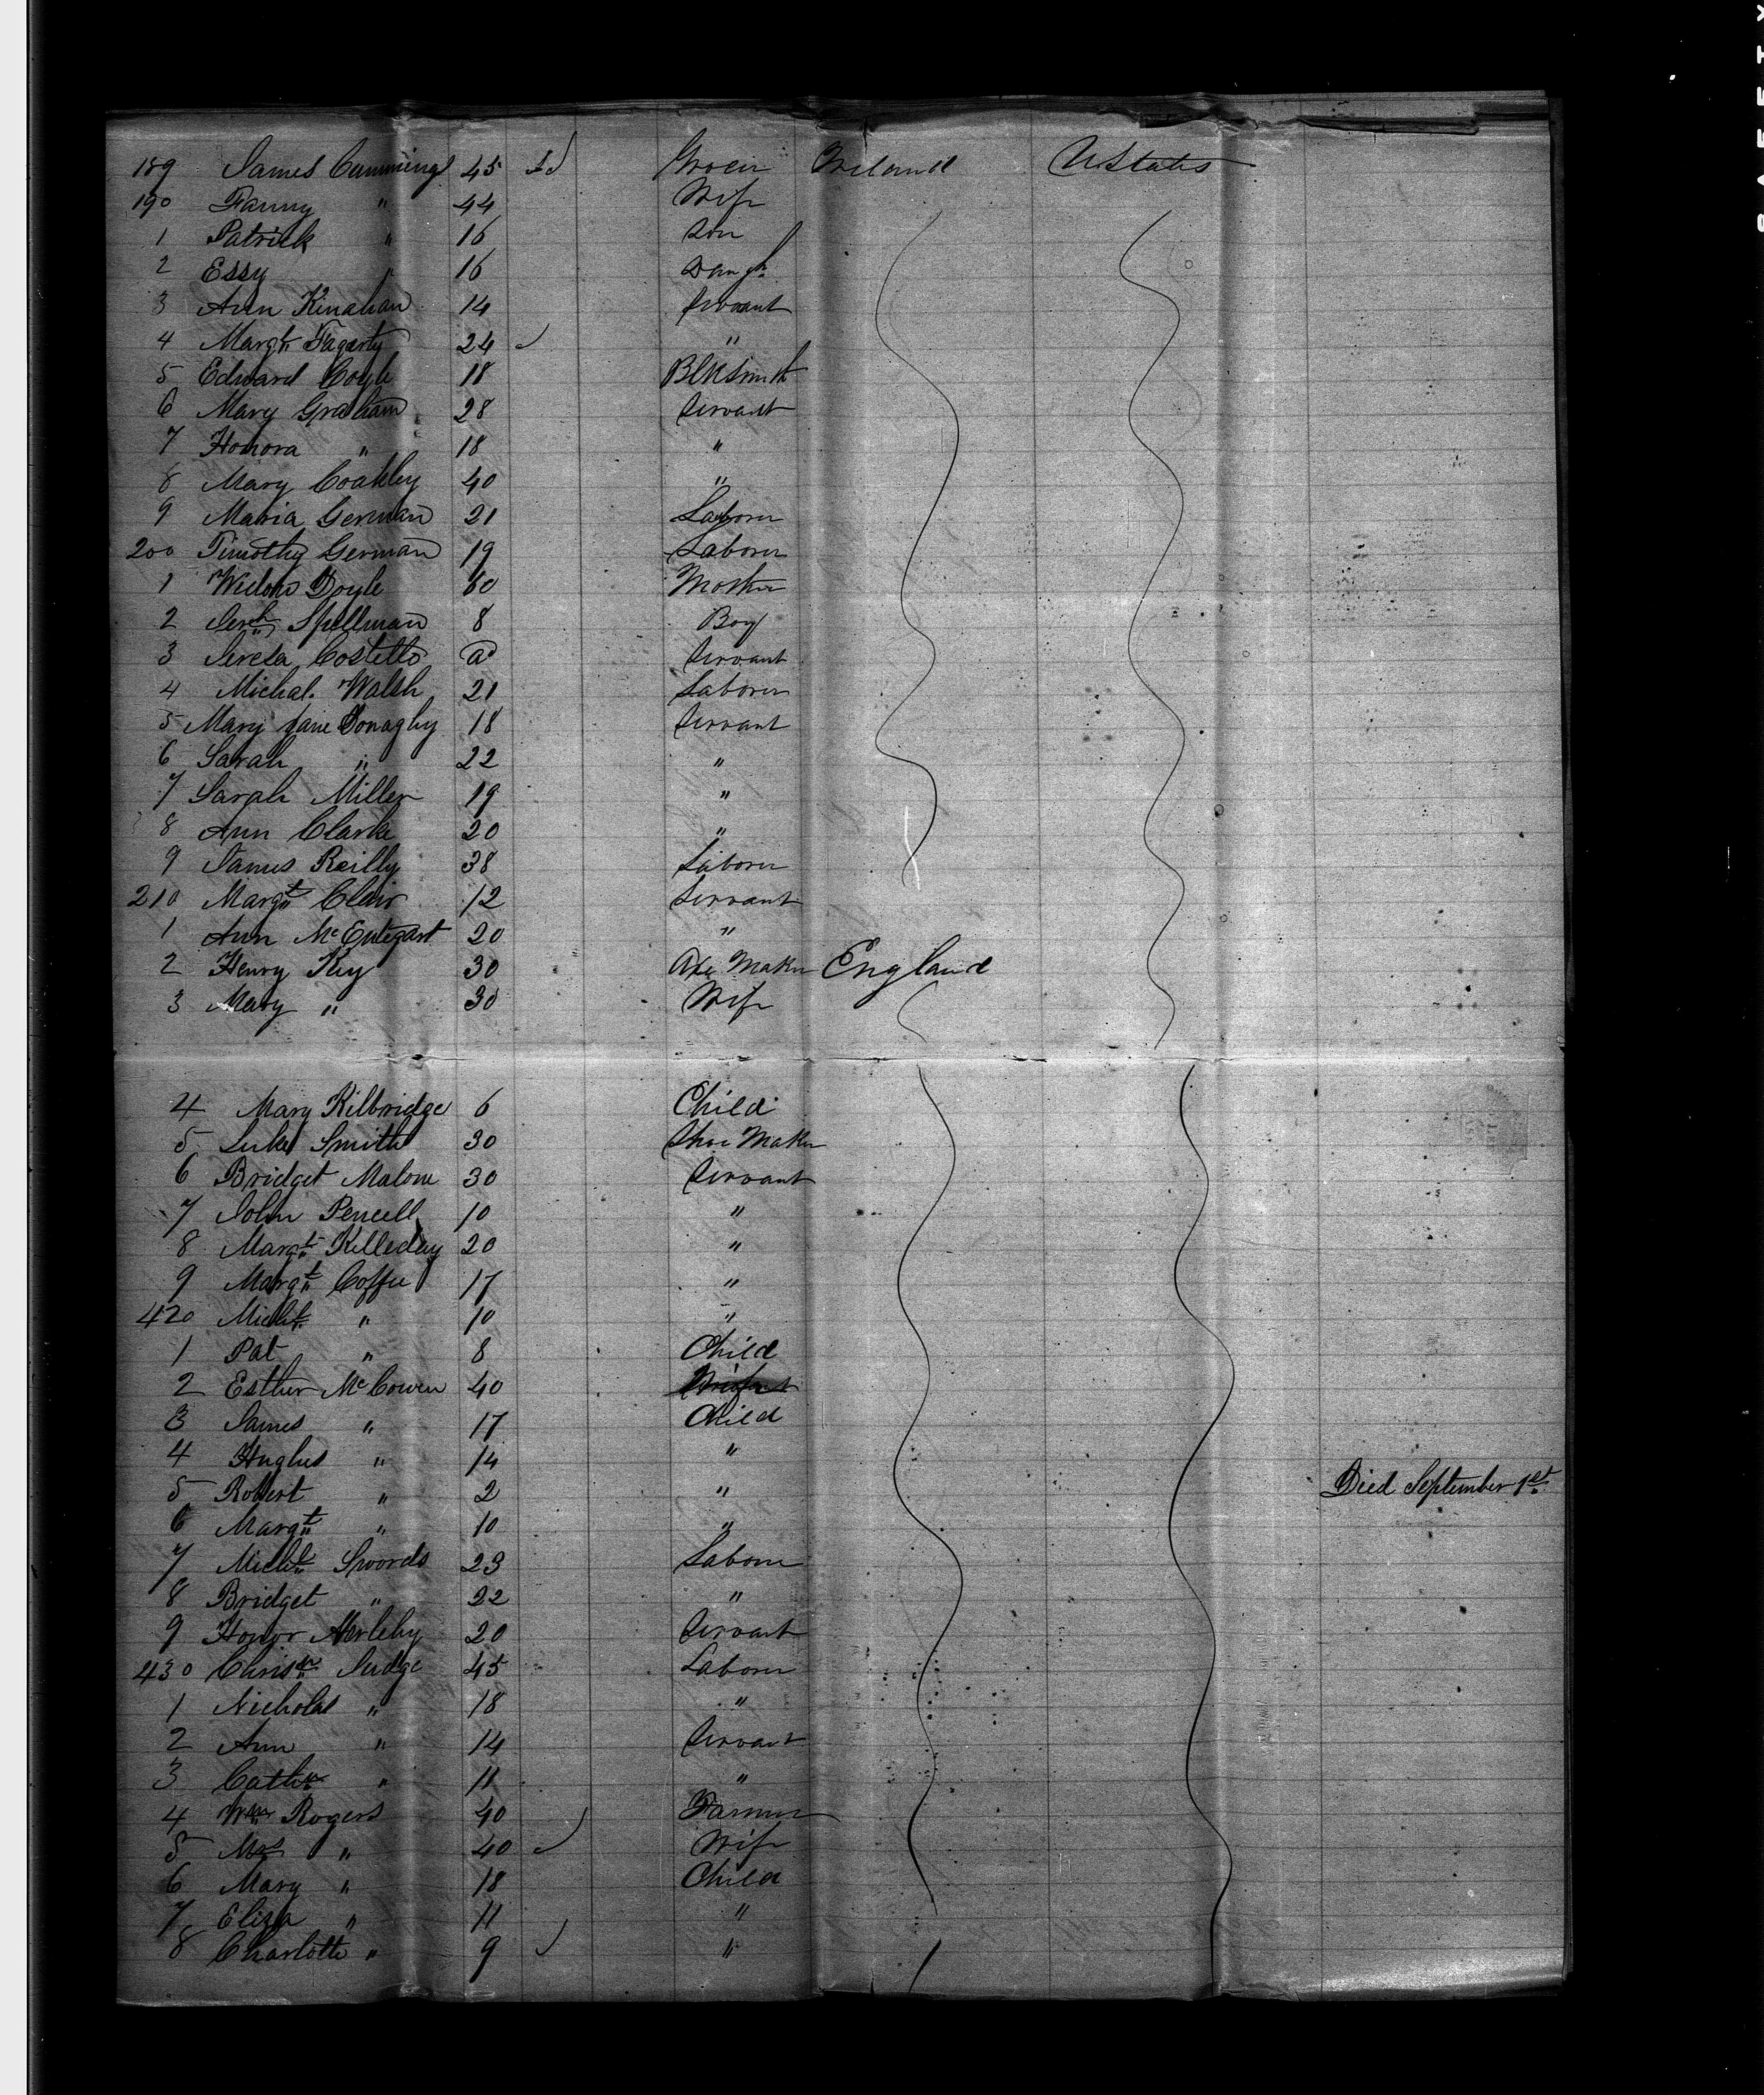 189 James Cummings 45 Grocer Ireland U States
190 Fanny " 44 Wife
1 Patrick " 16 Son
2 Essy " 16 Daugh
3 Ann Kinahan 14 Servant
4 Margt Fagarty 24 "
5 Edward Coyle 18 Blksmith
6 Mary Graham 28 Servant
7 Honora " 18 "
8 Mary Coakley 40 "
9 Maria German 21 Laborer
200 Timothy German 19 Laborer
1 Widow Doyle 60 Mother
2 Spellman 8 Boy
3 Teresa Costello Servant
4 Michal. Walsh 21 Laborer
5 Mary Jane Donaghy 18 Servant
6 Sarah " 22 "
7 Sarah Miller 19 "
8 Ann Clarke 20 "
9 James Reilly 38 Laborer
210 Margt Clair 12 Servant
1 Ann McEntegart 20 "
2 Henry Key 30 Axe Maker England
3 Mary " 30 Wife
4 Mary Kilbridge 6 Child
5 Luke Smith 30 Shoe Maker
6 Bridget Malone 30 Servant
7 John Pencell 10 "
8 Margt Killeday 20 "
9 Margt Coffee 17 "
420 Michl " 10 "
1 Pat " 8 Child
2 Esther McCowen 40
3 James " 17 Child
4 Hughes " 14 "
5 Robert " 2 " Died September 1st
6 Margt " 10 "
7 Michl Swords 23 Laborer
8 Bridget " 22 "
9 Honor 20 Servant
430 Chrisr Judge 45 Laborer
1 Nicholas " 18 "
2 Ann " 14 Servant
3 Cathn " 11 "
4 Wm Rogers 40 Farmer
5 Mrs " 40 Wife
6 Mary " 18 Child
7 Eliza " 11 "
8 Charlotte " 9 "